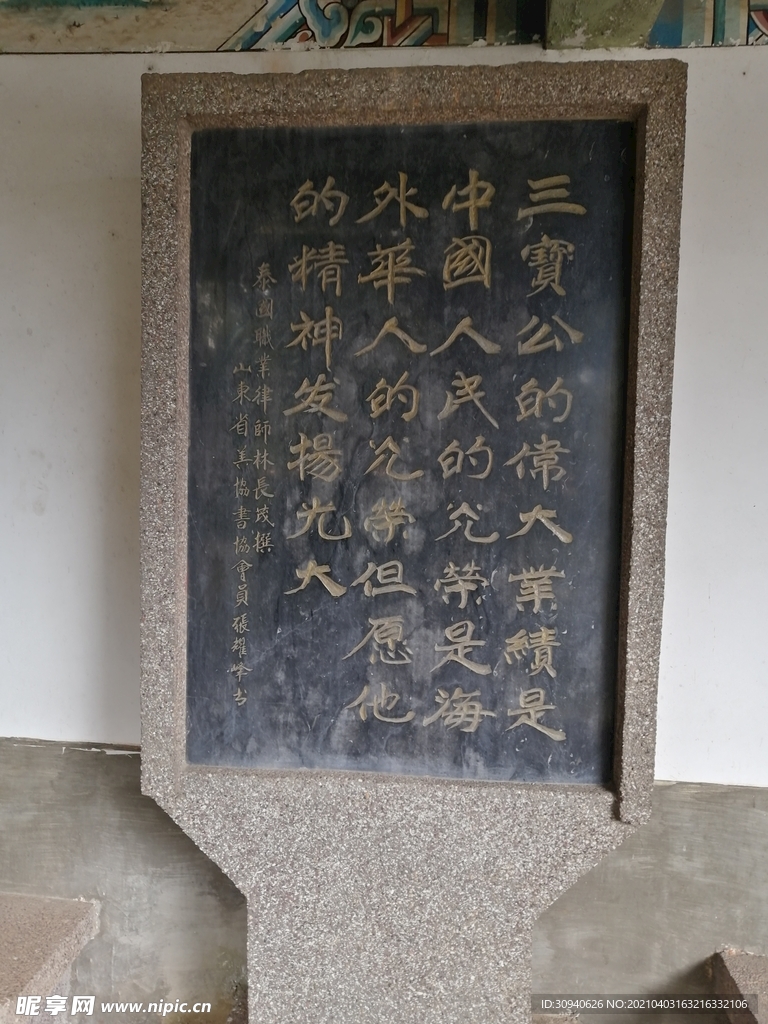 三寶公的偉大業績是
中國人民的光榮是海
外華人的光榮但愿他
的精神发揚光大
泰國職業律師林長茂撰
山東省美協書協會員張耀峰书
昵享网 www.nipic.cn
ID:30940626 NO:20210403163216332106